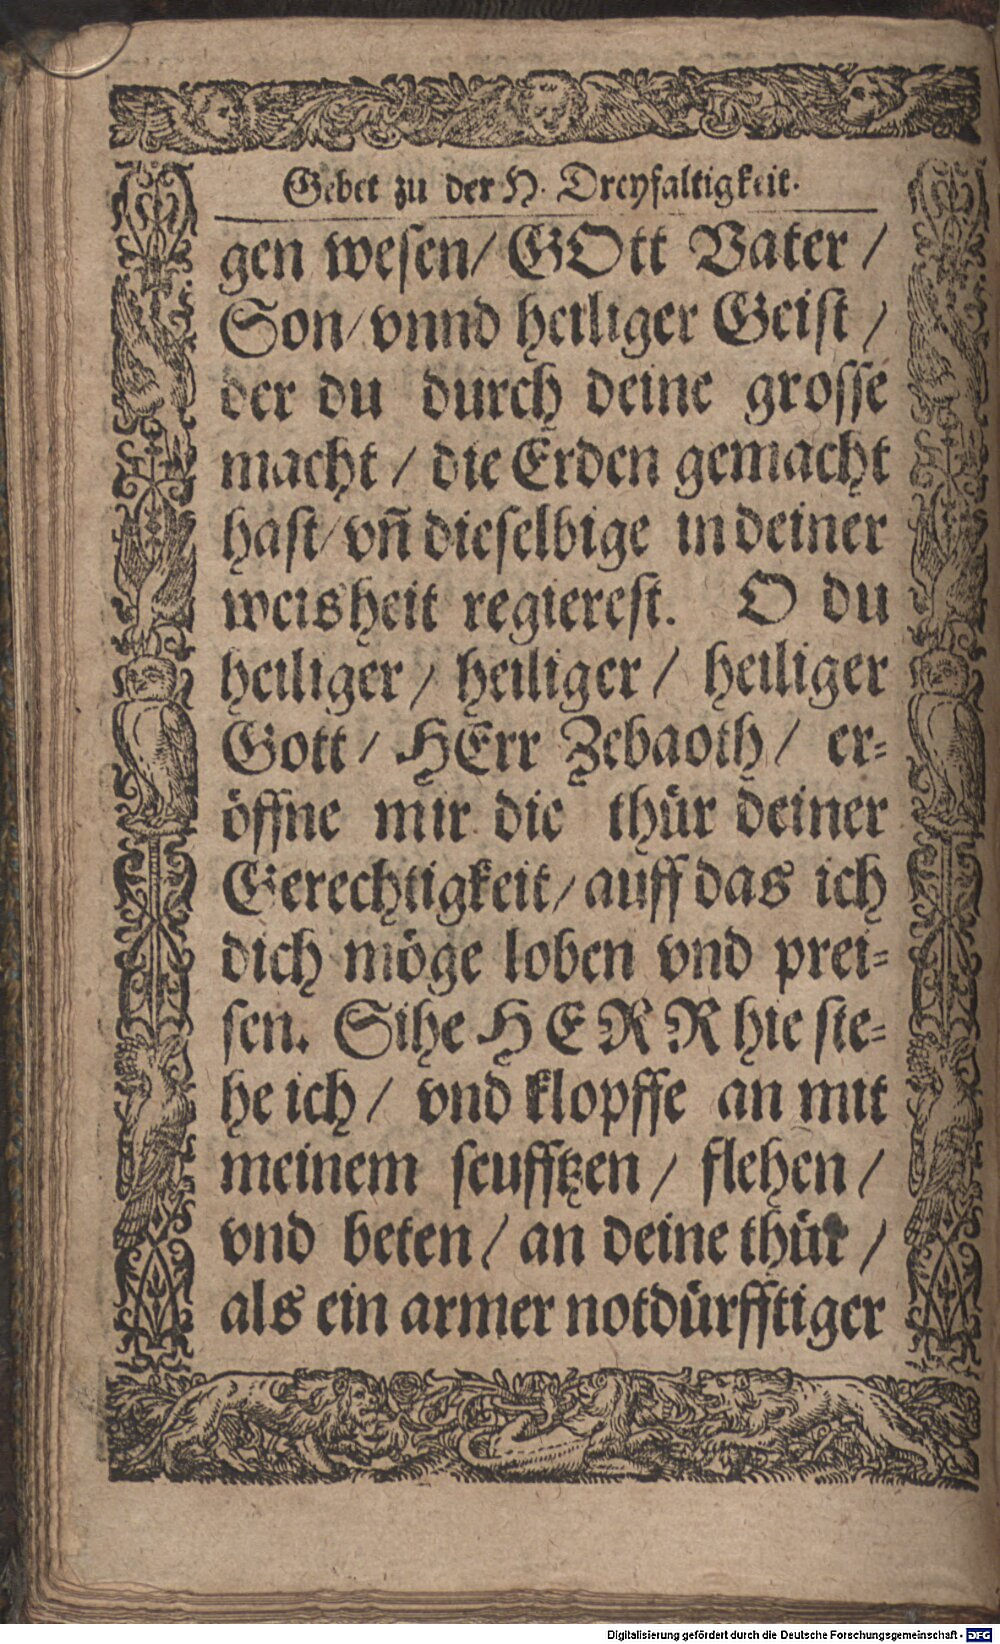 Gebet zu der H. Dreyfaltigkeit.
gen wesen/ GOtt Vater/
Son/ vnnd heiliger Geist/
der du durch deine grosse
macht/ die Erden gemacht
hast/ vn̄ dieselbige in deiner
weisheit regierest. O du
heiliger/ heiliger/ heiliger
Gott/ HErr Zebaoth/ er-
öffne mir die thür deiner
Gerechtigkeit/ auff das ich
dich möge loben vnd prei-
sen. Sihe HERR hie ste-
he ich/ vnd klopffe an mit
meinem seufftzen/ flehen/
vnd beten/ an deine thür/
als ein armer notdürfftiger
Digitalisierung gefördert durch die Deutsche Forschungsgemeinschaft - DFG